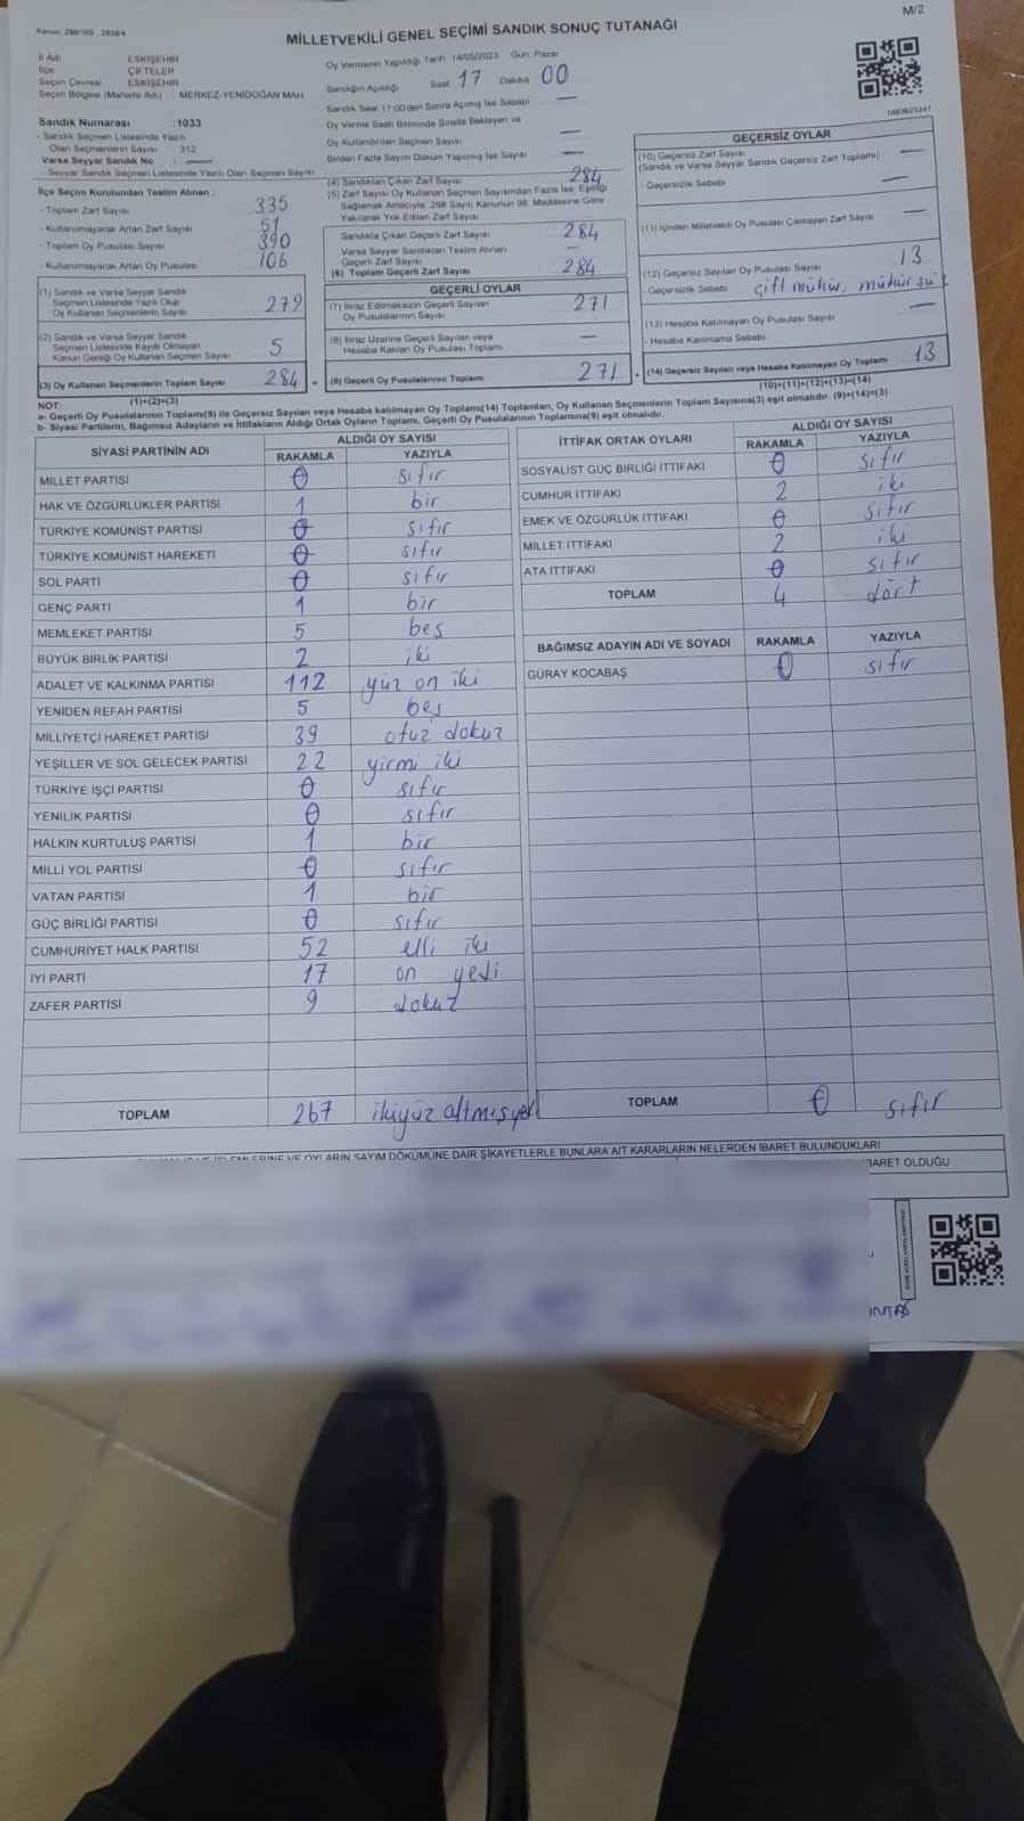 M/2
MİLLETVEKİLİ GENEL SEÇİMİ SANDIK SONUÇ TUTANAĞI
İl Adı : ESKİŞEHİR
İlçe : ÇİFTELER
Seçim Çevresi : ESKİŞEHİR
Seçim Bölgesi (Mahalle Adı) : MERKEZ-YENİDOĞAN MAH.
Oy Vermenin Yapıldığı Tarih : 14/05/2023 Gün: Pazar
Sandığın Açıldığı Saat 17 Dakika 00
Sandık Saat 17:00'den Sonra Açılmış İse Sebebi —
Oy Verme Saati Bitiminde Sırada Bekleyen ve
Oy Kullandırılan Seçmen Sayısı —
Birden Fazla Sayım Döküm Yapılmış İse Sayısı —
Sandık Numarası :1033
- Sandık Seçmen Listesinde Yazılı
Olan Seçmenlerin Sayısı : 312
Varsa Seyyar Sandık No : —
- Seyyar Sandık Seçmen Listesinde Yazılı Olan Seçmen Sayısı
İlçe Seçim Kurulundan Teslim Alınan :
- Toplam Zarf Sayısı 335
- Kullanılmayarak Artan Zarf Sayısı 51
- Toplam Oy Pusulası Sayısı 390
- Kullanılmayarak Artan Oy Pusulası 106
(1) Sandık ve Varsa Seyyar Sandık
Seçmen Listesinde Yazılı Olup
Oy Kullanan Seçmenlerin Sayısı 279
(2) Sandık ve Varsa Seyyar Sandık
Seçmen Listesinde Kayıtlı Olmayan
Kanun Gereği Oy Kullanan Seçmen Sayısı 5
(3) Oy Kullanan Seçmenlerin Toplam Sayısı 284
(1)+(2)=(3)
(4) Sandıktan Çıkan Zarf Sayısı 284
(5) Zarf Sayısı Oy Kullanan Seçmen Sayısından Fazla İse, Eşitliği
Sağlamak Amacıyla, 298 Sayılı Kanunun 98. Maddesine Göre
Yakılarak Yok Edilen Zarf Sayısı
Sandıkta Çıkan Geçerli Zarf Sayısı 284
Varsa Seyyar Sandıktan Teslim Alınan
Geçerli Zarf Sayısı —
(6) Toplam Geçerli Zarf Sayısı 284
GEÇERLİ OYLAR
(7) İtiraz Edilmeksizin Geçerli Sayılan
Oy Pusulalarının Sayısı 271
(8) İtiraz Üzerine Geçerli Sayılan veya
Hesaba Katılan Oy Pusulası Toplamı —
(9) Geçerli Oy Pusulalarının Toplamı 271
GEÇERSİZ OYLAR
(10) Geçersiz Zarf Sayısı —
(Sandık ve Varsa Seyyar Sandık Geçersiz Zarf Toplamı)
- Geçersizlik Sebebi —
(11) İçinden Milletvekili Oy Pusulası Çıkmayan Zarf Sayısı —
(12) Geçersiz Sayılan Oy Pusulası Sayısı 13
Geçersizlik Sebebi çift mühür, mühürsüz
(13) Hesaba Katılmayan Oy Pusulası Sayısı —
- Hesaba Katılmama Sebebi
(14) Geçersiz Sayılan veya Hesaba Katılmayan Oy Toplamı 13
(10)+(11)+(12)+(13)=(14)
NOT:
a- Geçerli Oy Pusulalarının Toplamı(9) ile Geçersiz Sayılan veya Hesaba katılmayan Oy Toplamı(14) Toplamları, Oy Kullanan Seçmenlerin Toplam Sayısına(3) eşit olmalıdır. (9)+(14)=(3)
b- Siyasi Partilerin, Bağımsız Adayların ve İttifakların Aldığı Ortak Oyların Toplamı, Geçerli Oy Pusulalarının Toplamına(9) eşit olmalıdır.
SİYASİ PARTİNİN ADI ALDIĞI OY SAYISI
RAKAMLA YAZIYLA
MİLLET PARTİSİ 0 sıfır
HAK VE ÖZGÜRLÜKLER PARTİSİ 1 bir
TÜRKİYE KOMÜNİST PARTİSİ 0 sıfır
TÜRKİYE KOMÜNİST HAREKETİ 0 sıfır
SOL PARTİ 0 sıfır
GENÇ PARTİ 1 bir
MEMLEKET PARTİSİ 5 beş
BÜYÜK BİRLİK PARTİSİ 2 iki
ADALET VE KALKINMA PARTİSİ 112 yüz on iki
YENİDEN REFAH PARTİSİ 5 beş
MİLLİYETÇİ HAREKET PARTİSİ 39 otuz dokuz
YEŞİLLER VE SOL GELECEK PARTİSİ 22 yirmi iki
TÜRKİYE İŞÇİ PARTİSİ 0 sıfır
YENİLİK PARTİSİ 0 sıfır
HALKIN KURTULUŞ PARTİSİ 1 bir
MİLLİ YOL PARTİSİ 0 sıfır
VATAN PARTİSİ 1 bir
GÜÇ BİRLİĞİ PARTİSİ 0 sıfır
CUMHURİYET HALK PARTİSİ 52 elli iki
İYİ PARTİ 17 on yedi
ZAFER PARTİSİ 9 dokuz
TOPLAM 267 ikiyüz altmışyedi
İTTİFAK ORTAK OYLARI ALDIĞI OY SAYISI
RAKAMLA YAZIYLA
SOSYALİST GÜÇ BİRLİĞİ İTTİFAKI 0 sıfır
CUMHUR İTTİFAKI 2 iki
EMEK VE ÖZGÜRLÜK İTTİFAKI 0 sıfır
MİLLET İTTİFAKI 2 iki
ATA İTTİFAKI 0 sıfır
TOPLAM 4 dört
BAĞIMSIZ ADAYIN ADI VE SOYADI RAKAMLA YAZIYLA
GÜRAY KOCABAŞ 0 sıfır
TOPLAM 0 sıfır
OYLARIN SAYIM DÖKÜMÜNE DAİR ŞİKAYETLERLE BUNLARA AİT KARARLARIN NELERDEN İBARET BULUNDUKLARI
İBARET OLDUĞU